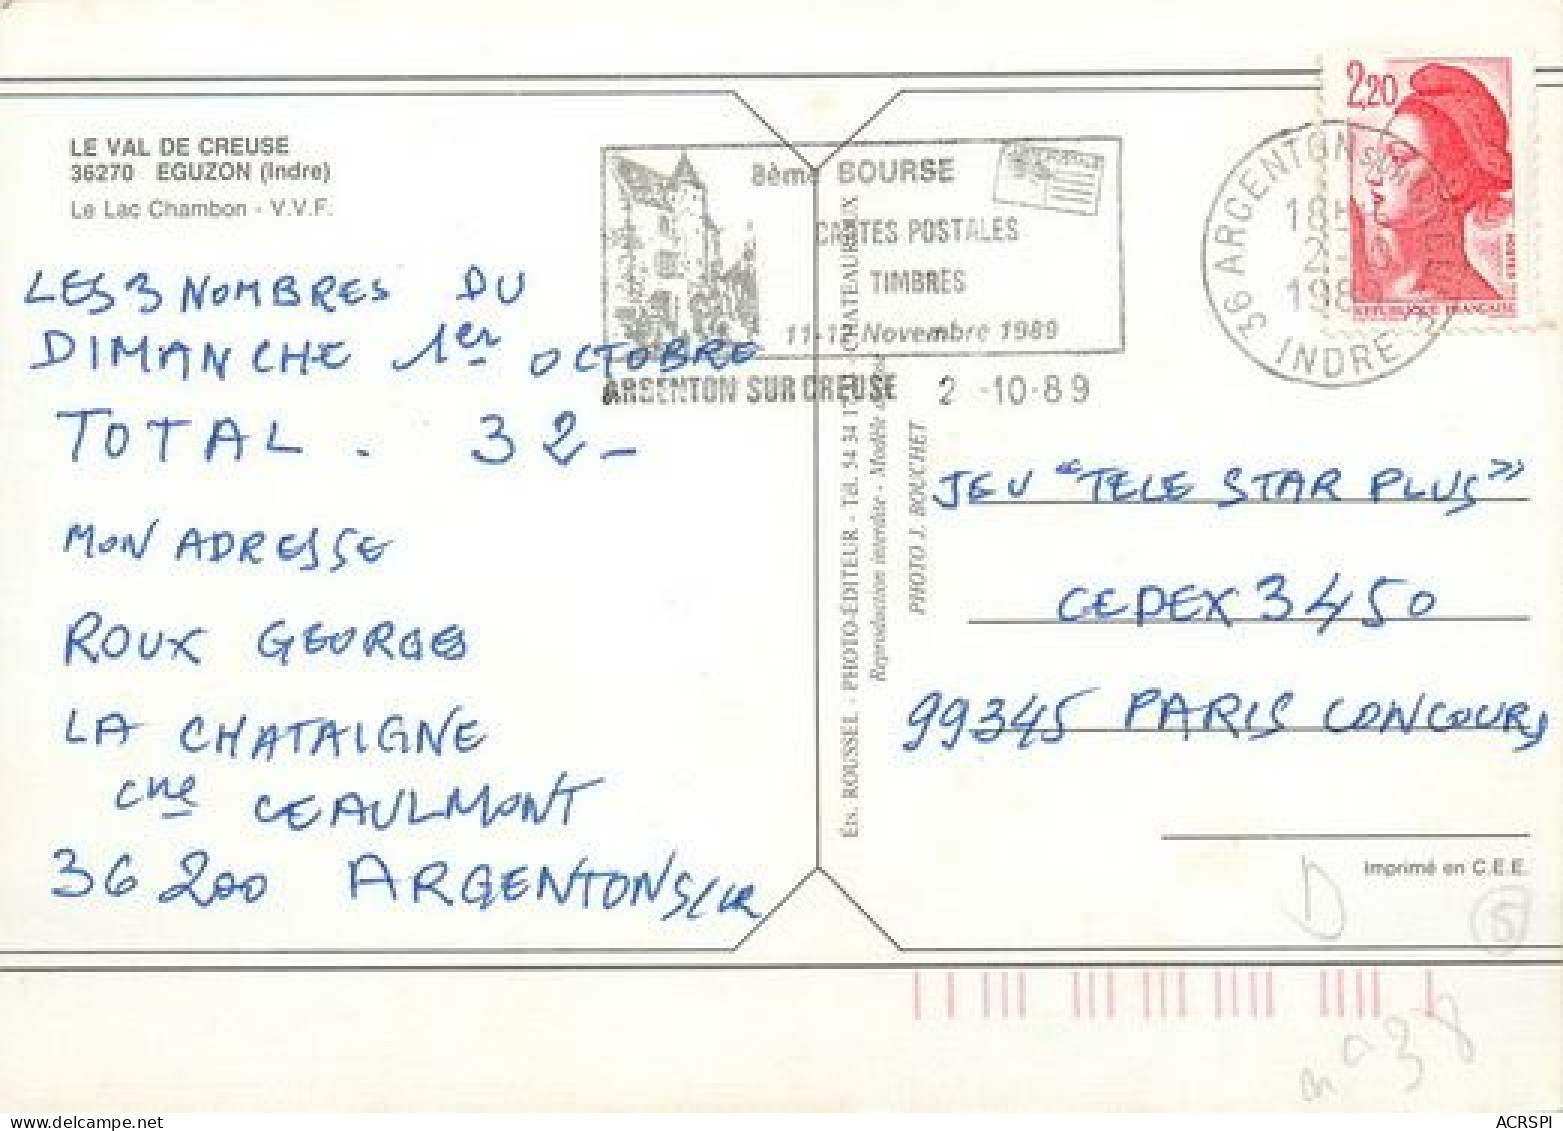 LE VAL DE CREUSE
36270 EGUZON (Indre)
Le Lac Chambon - V.V.F.
LES 3 NOMBRES DU
DIMANCHE 1er OCTOBRE
TOTAL . 32 -
MON ADRESSE
ROUX GEORGES
LA CHATAIGNE
cne CEAULMONT
36 200 ARGENTON S/CR
8ème BOURSE
CARTES POSTALES
TIMBRES
Novembre 1989
ARGENTON SUR CREUSE 2 -10-89
2,20
REPUBLIQUE FRANÇAISE
POSTES
36 ARGENTON SUR CREUSE
18H
1989
INDRE
Éts. ROUSSEL - PHOTO-ÉDITEUR - Tél. 54 34 CHATEAUROUX
Reproduction interdite - Modèle
PHOTO J. BOUCHET
JEU "TELE STAR PLUS»
CEDEX 3450
99345 PARIS CONCOURS
Imprimé en C.E.E.
D
5
n° 38
ACRSPI